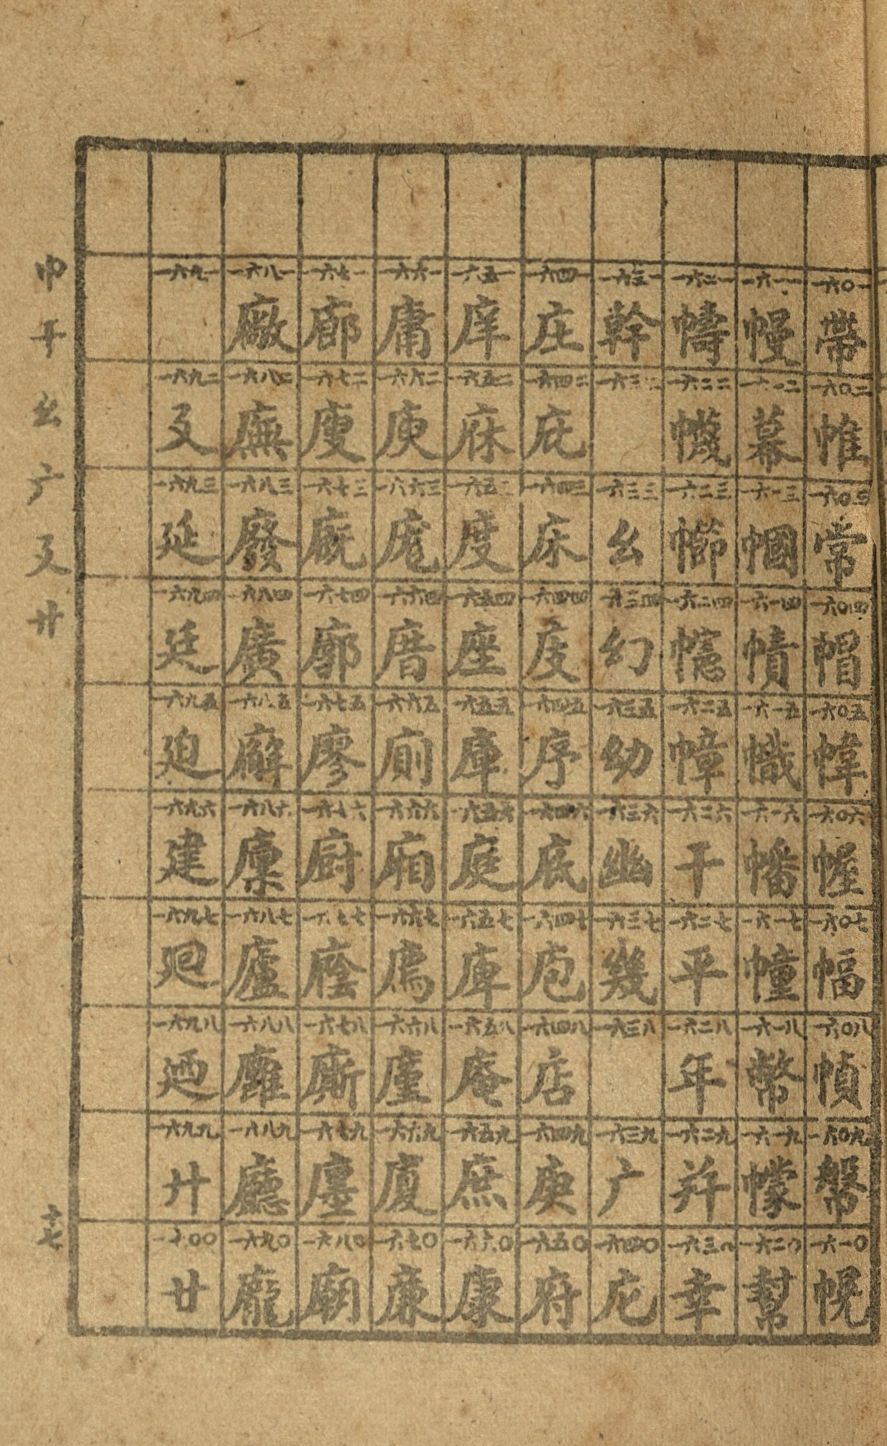 巾干幺广廴廾
十七
一六〇一 帶 一六〇二 帷 一六〇三 常 一六〇四 帽 一六〇五 幃 一六〇六 幄 一六〇七 幅 一六〇八 幀 一六〇九 幋 一六一〇 幌
一六一一 幔 一六一二 幕 一六一三 幗 一六一四 幘 一六一五 幟 一六一六 幡 一六一七 幢 一六一八 幣 一六一九 幪 一六二〇 幫
一六二一 幬 一六二二 幭 一六二三 幯 一六二四 幰 一六二五 幛 一六二六 干 一六二七 平 一六二八 年 一六二九 幷 一六三〇 幸
一六三一 幹 一六三二 一六三三 幺 一六三四 幻 一六三五 幼 一六三六 幽 一六三七 幾 一六三八 一六三九 广 一六四〇 庀
一六四一 庄 一六四二 庇 一六四三 床 一六四四 庋 一六四五 序 一六四六 底 一六四七 庖 一六四八 店 一六四九 庚 一六五〇 府
一六五一 庠 一六五二 庥 一六五三 度 一六五四 座 一六五五 庫 一六五六 庭 一六五七 庳 一六五八 庵 一六五九 庶 一六六〇 康
一六六一 庸 一六六二 庾 一六六三 庬 一六六四 庴 一六六五 廁 一六六六 廂 一六六七 廌 一六六八 廑 一六六九 廈 一六七〇 廉
一六七一 廊 一六七二 廋 一六七三 廐 一六七四 廓 一六七五 廖 一六七六 廚 一六七七 廕 一六七八 廝 一六七九 廛 一六八〇 廟
一六八一 廠 一六八二 廡 一六八三 廢 一六八四 廣 一六八五 廨 一六八六 廩 一六八七 廬 一六八八 廱 一六八九 廳 一六九〇 龐
一六九一 一六九二 廴 一六九三 延 一六九四 廷 一六九五 廹 一六九六 建 一六九七 廻 一六九八 廼 一六九九 廾 一七〇〇 廿